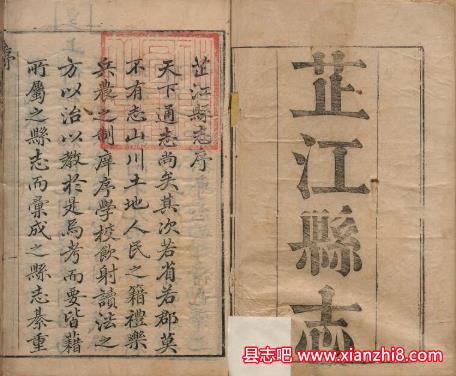 芷江縣志
芷江縣志序
天下通志尚矣其次若省若郡莫
不有志山川土地人民之籍禮樂
兵農之制庠序學校飲射讀法之
方以治以教於是焉考而要皆藉
所屬之縣志而彙成之縣志綦重
序
县志吧
www.xianzhi8.com